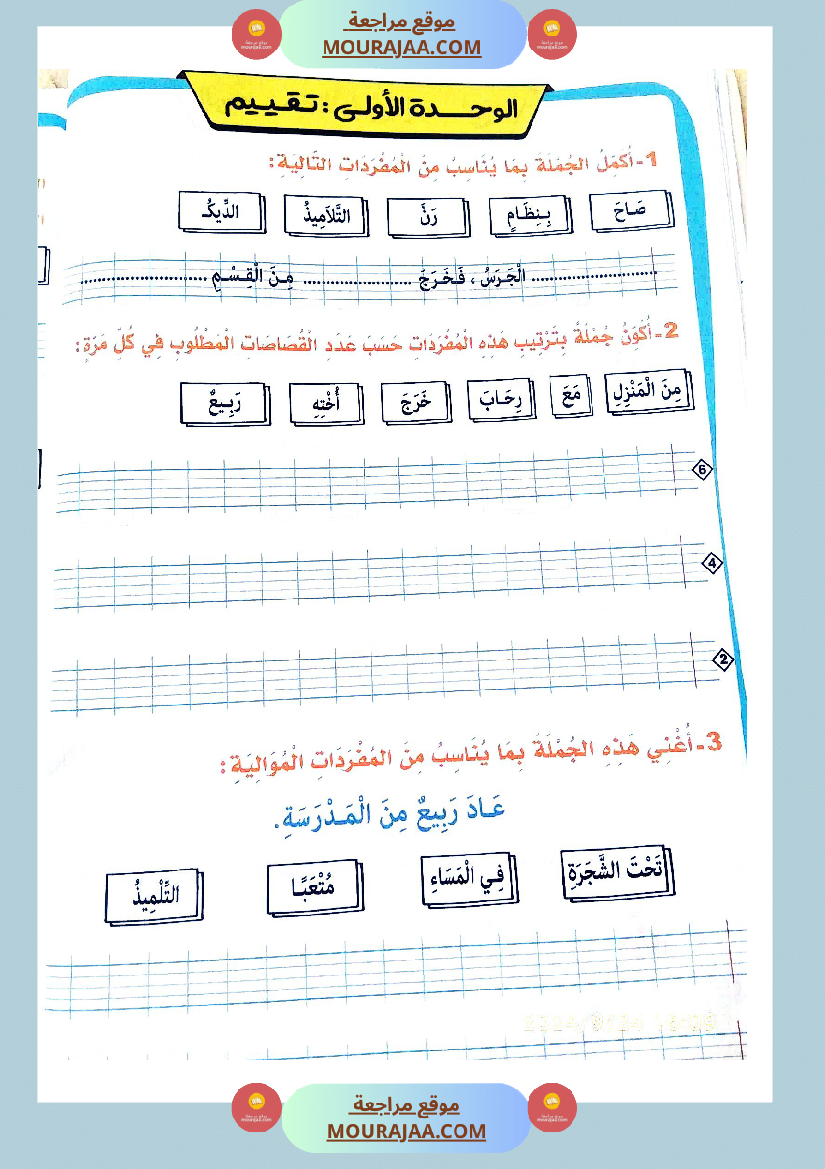 موقع مراجعة
MOURAJAA.COM
الوحدة الأولى : تقييم
1- أُكَمِّلُ الجُمْلَةَ بِمَا يُنَاسِبُ مِنَ الْمُفْرَدَاتِ التَّالِيَةِ:
صَاحَ بِنِظَامٍ رَنَّ التَّلَامِيذُ الدِّيكُ
........................ الْجَرَسُ ، فَخَرَجَ ..................... مِنَ الْقِسْمِ ........................
2- أُكَوِّنُ جُمْلَةً بِتَرْتِيبِ هَذِهِ الْمُفْرَدَاتِ حَسَبَ عَدَدِ الْقُصَاصَاتِ الْمَطْلُوبِ فِي كُلِّ مَرَةٍ:
مِنَ الْمَنْزِلِ مَعَ رِحَابَ خَرَجَ أُخْتِهِ رَبِيعٌ
6
4
2
3- أُغْنِي هَذِهِ الجُمْلَةَ بِمَا يُنَاسِبُ مِنَ المُفْرَدَاتِ الْمُوَالِيَةِ:
عَادَ رَبِيعٌ مِنَ الْمَدْرَسَةِ.
تَحْتَ الشَّجَرَةِ فِي الْمَسَاءِ مُتْعَبًا التِّلْمِيذُ
موقع مراجعة
MOURAJAA.COM